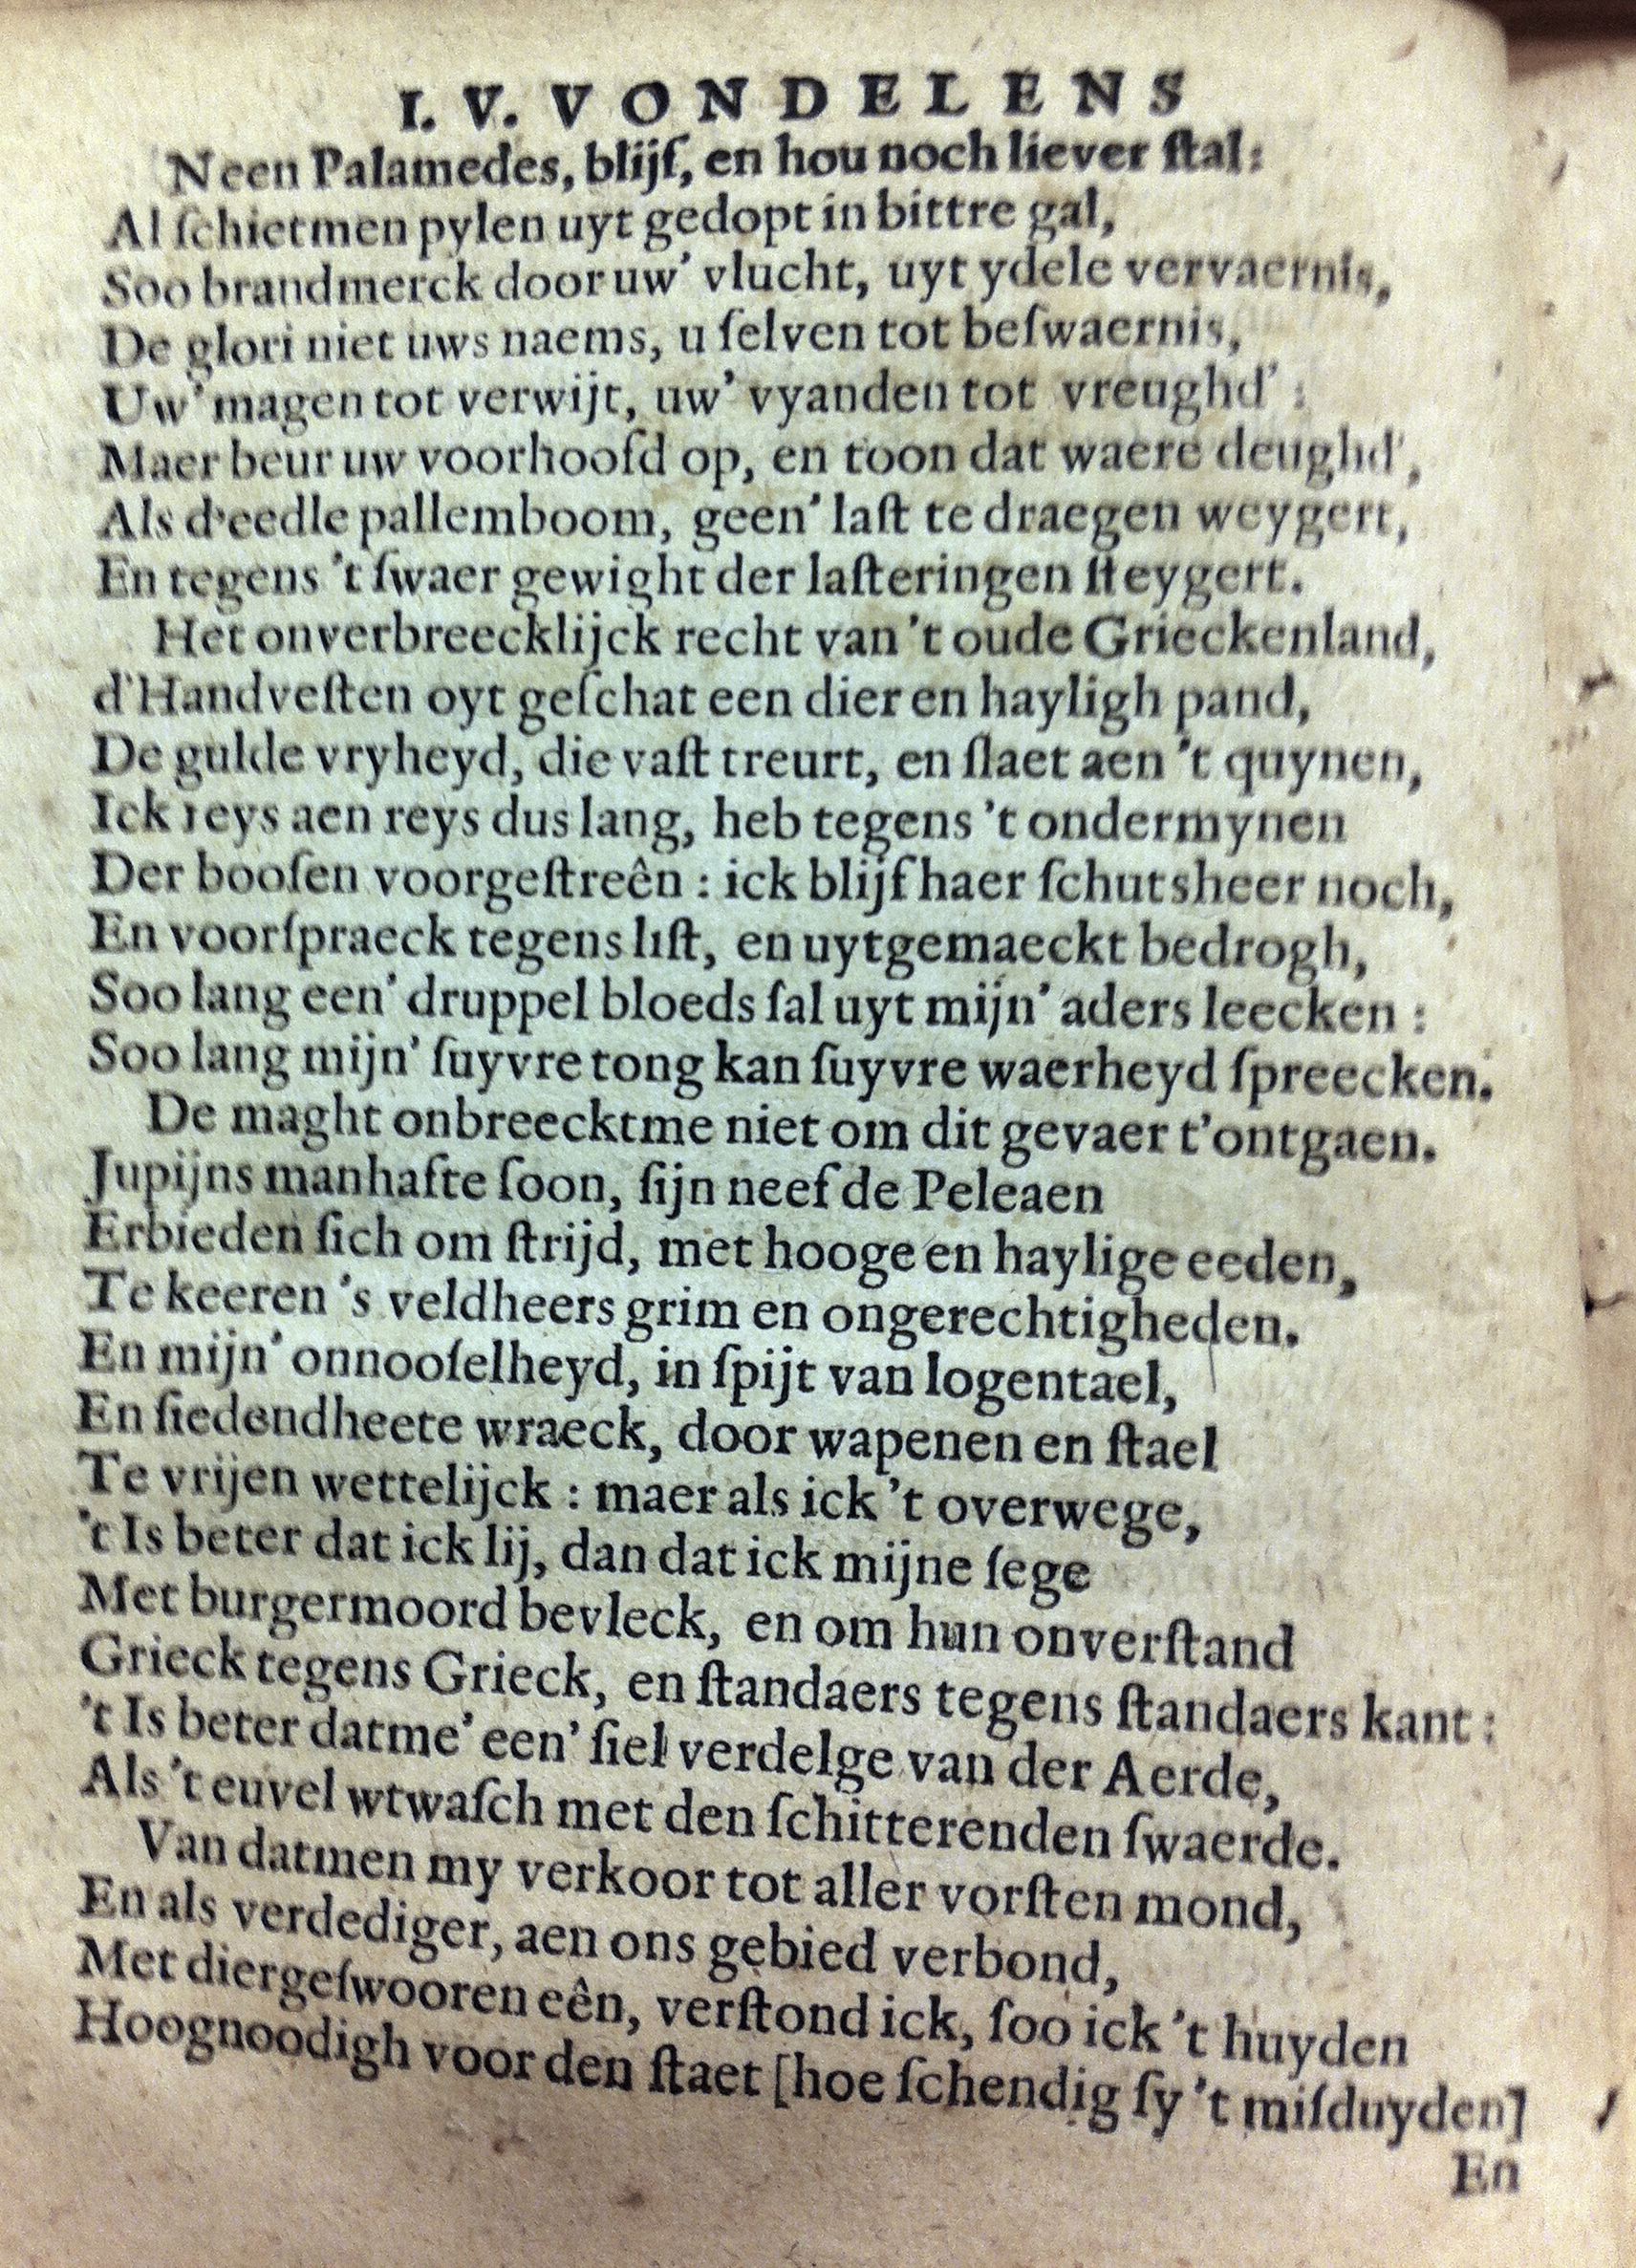 I. V. VONDELENS
Neen Palamedes, blijf, en hou noch liever ſtal:
Al ſchietmen pylen uyt gedopt in bittre gal,
Soo brandmerck door uw' vlucht, uyt ydele vervaernis,
De glori niet uws naems, u ſelven tot beſwaernis,
Uw' magen tot verwijt, uw' vyanden tot vreughd' :
Maer beur uw voorhoofd op, en toon dat waere deughd',
Als d'eedle pallemboom, geen' laſt te draegen weygert,
En tegens 't ſwaer gewight der laſteringen ſteygert.
Het onverbreecklijck recht van 't oude Grieckenland,
d'Handveſten oyt geſchat een dier en hayligh pand,
De gulde vryheyd, die vaſt treurt, en ſlaet aen 't quynen,
Ick reys aen reys dus lang, heb tegens 't ondermynen
Der booſen voorgeſtreên : ick blijf haer ſchutsheer noch,
En voorſpraeck tegens liſt, en uytgemaeckt bedrogh,
Soo lang een' druppel bloeds ſal uyt mijn' aders leecken :
Soo lang mijn' ſuyvre tong kan ſuyvre waerheyd ſpreecken.
De maght onbreecktme niet om dit gevaer t'ontgaen.
Jupijns manhafte ſoon, ſijn neef de Peleaen
Erbieden ſich om ſtrijd, met hooge en haylige eeden,
Te keeren 's veldheers grim en ongerechtigheden.
En mijn' onnooſelheyd, in ſpijt van logentael,
En ſiedendheete wraeck, door wapenen en ſtael
Te vrijen wettelijck : maer als ick 't overwege,
't Is beter dat ick lij, dan dat ick mijne ſege
Met burgermoord bevleck, en om hun onverſtand
Grieck tegens Grieck, en ſtandaers tegens ſtandaers kant :
't Is beter datme' een' ſiel verdelge van der Aerde,
Als 't euvel wtwaſch met den ſchitterenden ſwaerde.
Van datmen my verkoor tot aller vorſten mond,
En als verdediger, aen ons gebied verbond,
Met diergeſwooren eên, verſtond ick, ſoo ick 't huyden
Hoognoodigh voor den ſtaet [hoe ſchendig ſy 't miſduyden]
En